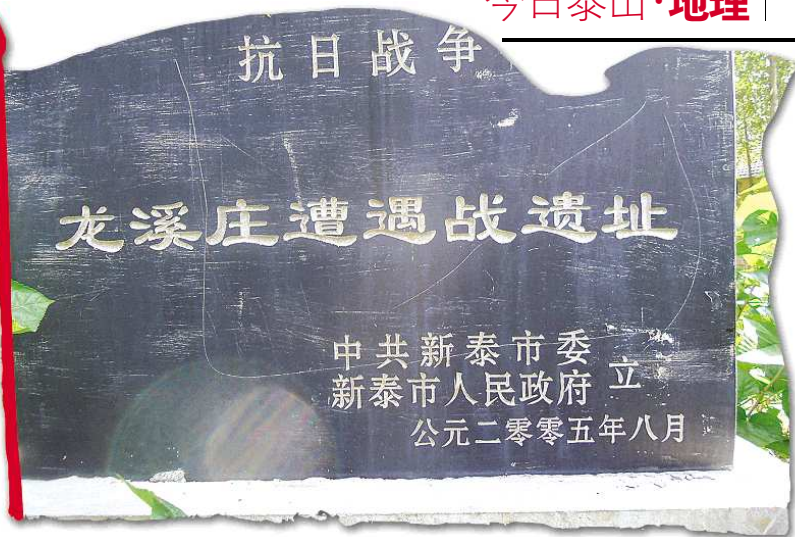 今日泰山·地理
抗日战争
龙溪庄遭遇战遗址
中共新泰市委
新泰市人民政府 立
公元二零零五年八月